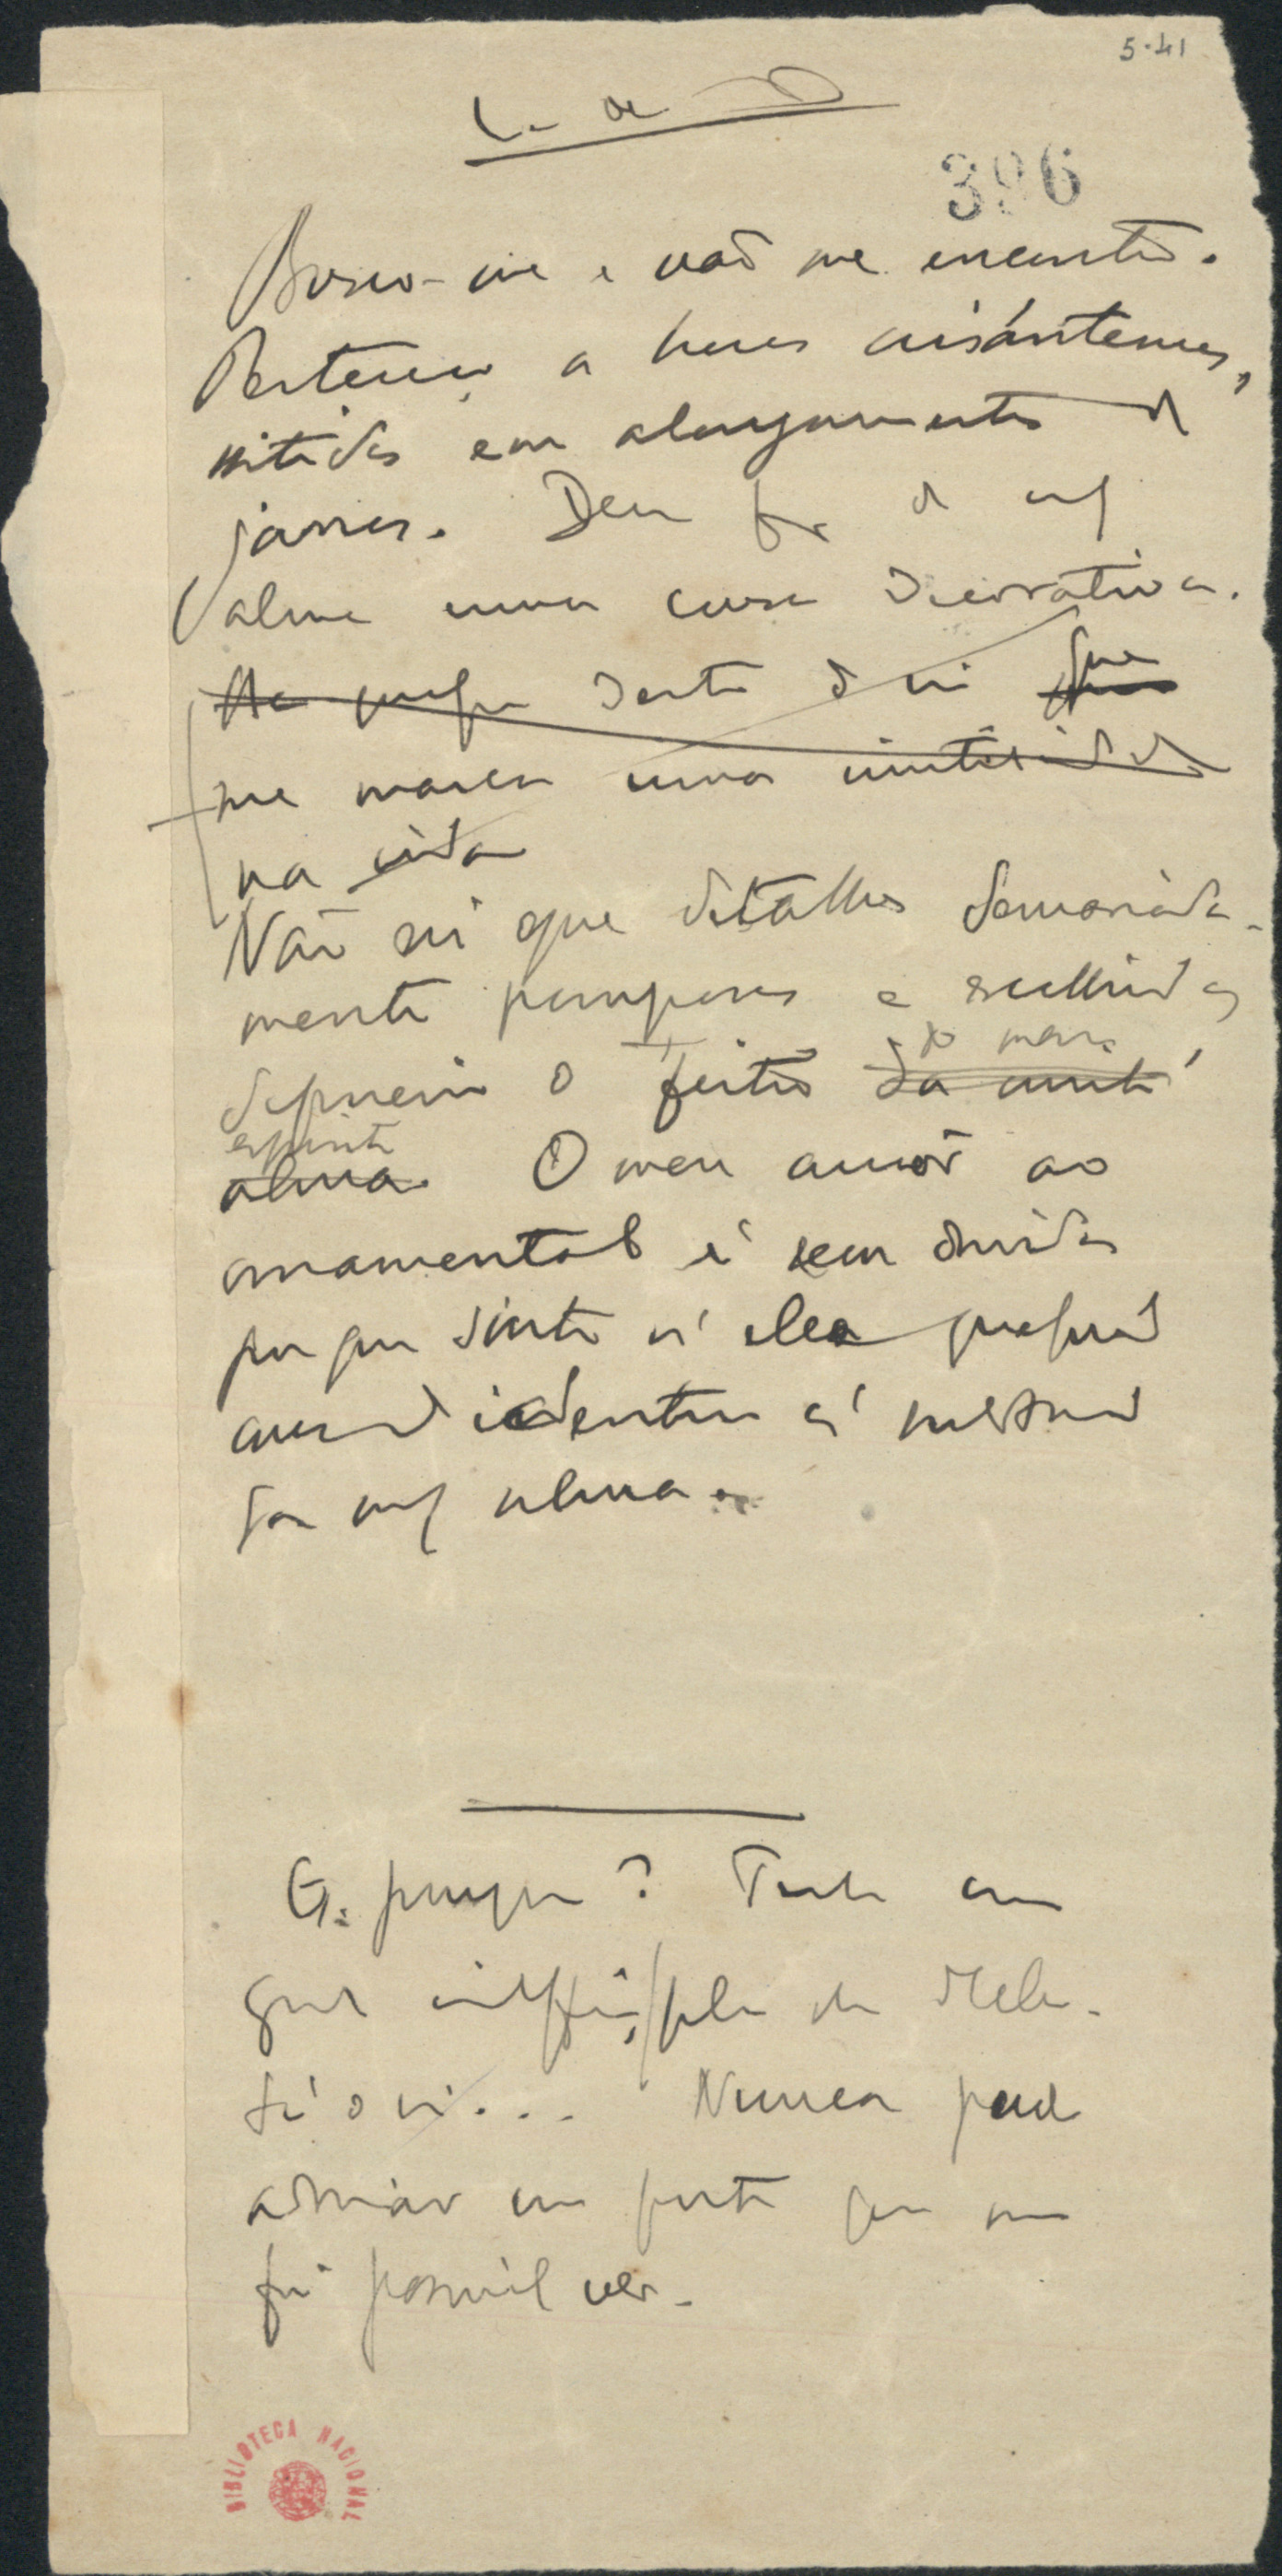 5-41
L. do D.
396
Busco-me e não me encontro.
Pertenço a horas crisântemos,
nitidas em alongamentos de
jarros. Deu for de
alma uma cousa decorativa.
dentro de mim que
me marca uma
na vida
Não sei que detalhes demasiada-
mente pomposos e escolhidos
do meu
definem o feitio da minha
espirito
alma. O meu amôr ao
ornamental é sem duvida
porque sinto n'elle qualquer
cousa d'identico á substancia
da minha alma.
G. porque? Tenho um
d'elle
Nunca pude
admirar um poeta que me
foi possivel ver.
BIBLIOTECA NACIONAL